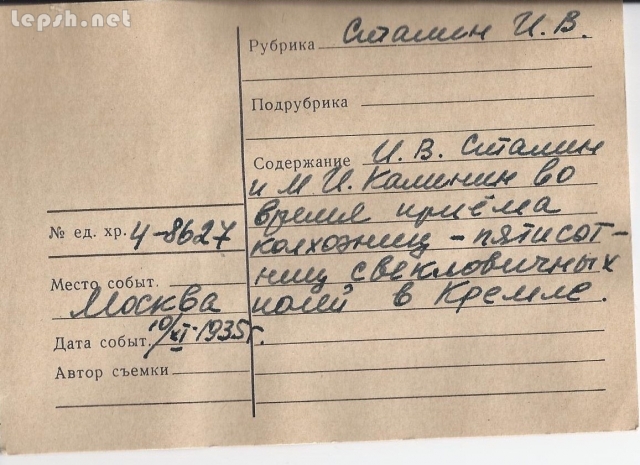 lepsh.net
Рубрика Сталин И.В.
Подрубрика
Содержание И. В. Сталин
и М И. Калинин во
время приёма
колхозниц - пятисот-
ниц свекловичных
полей в Кремле.
№ ед. хр. 4-8627
Место событ.
Москва
Дата событ. 10/XI-1935г.
Автор съемки